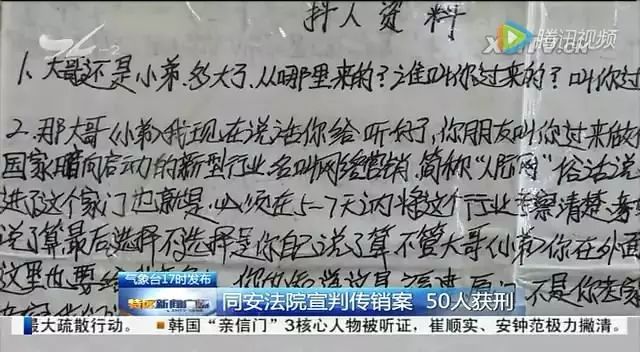 抖人资料
腾讯视频
1、大哥还是小弟、多大了、从哪里来的？谁叫你过来的？叫你过
2、那大哥(小弟)我现在说话你给听好了，你朋友叫你过来
国家暗向启动的新型行业名叫网络营销，简称“人际网”俗话说
进了这个家门也就是必须在5-7天之内将这个行业考察清楚、
说了算最后选择不选择是你自己说了算不管大哥(小弟)你在外面
这里也要
气象台17时发布
特区新闻广场
同安法院宣判传销案 50人获刑
不是你
最大疏散行动。 ■ 韩国“亲信门”3核心人物被听证，崔顺实、安钟范极力撇清。